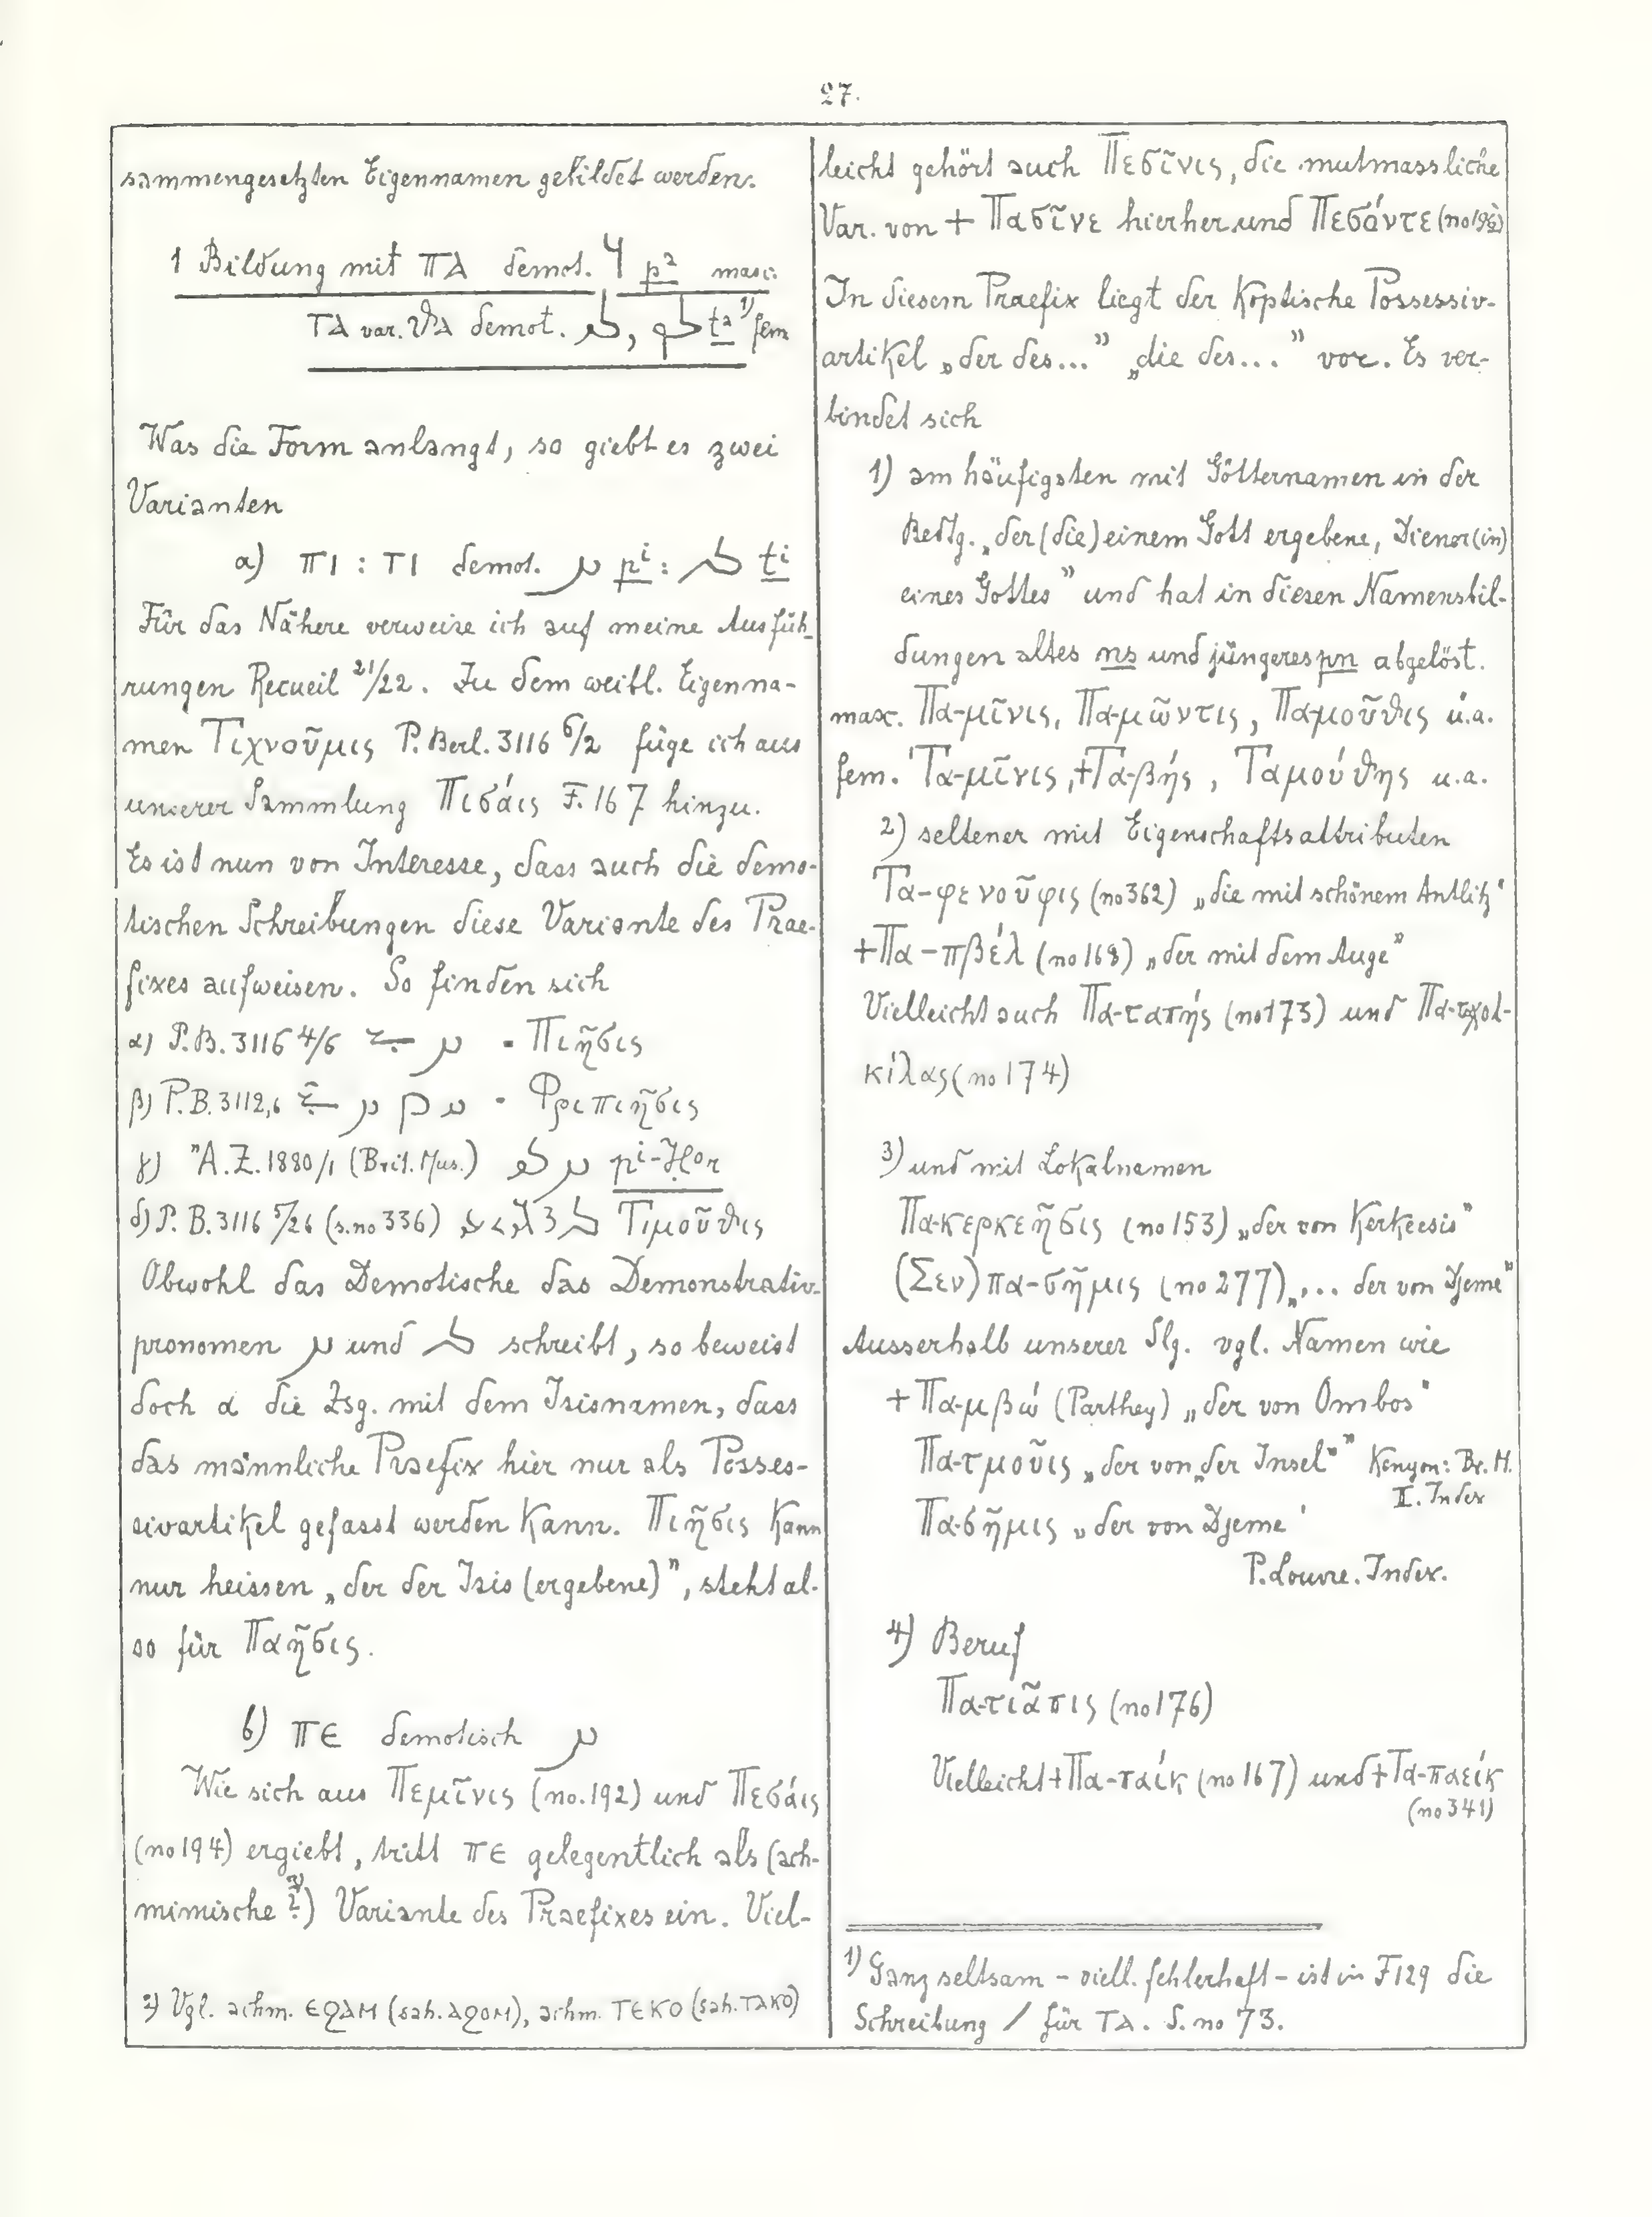 27.
sammengesetzten Eigennamen gebildet werden.
1 Bildung mit ⲠⲀ demot. p² masc.
ⲦⲀ var. ⲐⲀ demot. , t² ¹) fem
Was die Form anlangt, so giebt es zwei
Varianten
a) ⲠⲒ : ⲦⲒ demot. pⁱ : tⁱ
Für das Nähere verweise ich auf meine Ausfüh-
rungen Recueil 21/22. Zu dem weibl. Eigenna-
men Τιχνοῦμις P. Berl. 3116 6/2 füge ich aus
unserer Sammlung Πισάις F. 167 hinzu.
Es ist nun von Interesse, dass auch die demo-
tischen Schreibungen diese Variante des Prae-
fixes aufweisen. So finden sich
α) P.B. 3116 4/6 = Πιῆσις
β) P.B. 3112,6 = Φριπιῆσις
γ) A.Z. 1880/1 (Brit. Mus.) pⁱ-Ḥor
δ) P.B. 3116 5/26 (s. no 336) Τιμοῦθις
Obwohl das Demotische das Demonstrativ-
pronomen und schreibt, so beweist
doch α die Zsg. mit dem Isisnamen, dass
das männliche Praefix hier nur als Posses-
sivartikel gefasst werden kann. Πιῆσις kann
nur heissen „der der Isis (ergebene)”, steht al-
so für Παῆσις.
b) ⲠⲈ demotisch
Wie sich aus Πεμῖνις (no. 192) und Πεσάις
(no 194) ergiebt, tritt ⲠⲈ gelegentlich als (ach-
mimische ?²)) Variante des Praefixes ein. Viel-
2) Vgl. achm. ⲈϨⲀⲘ (sah. ⲀϨⲞⲘ), achm. ⲦⲈⲔⲞ (sah. ⲦⲀⲔⲞ)
leicht gehört auch Πεσῖνις, die mutmassliche
Var. von + Πασῖνε hierher und Πεσάντε
In diesem Praefix liegt der Koptische Possessiv-
artikel „der des...” „die des...” vor. Es ver-
bindet sich
1) am häufigsten mit Götternamen in der
Bedtg. „der (die) einem Gott ergebene, Diener(in)
eines Gottes” und hat in diesen Namensbil-
dungen altes ns und jüngeres pn abgelöst.
masc. Πα-μῖνις, Πα-μῶντις, Πα-μοῦθις u.a.
fem. Τα-μῖνις, +Τα-βής, Ταμούθης u.a.
2) seltener mit Eigenschaftsattributen
Τα-φενοῦφις (no 362) „die mit schönem Antlitz”
+Πα-πβέλ (no 168) „der mit dem Auge”
Vielleicht auch Πα-τατής (no 173) und
κίλας (no 174)
3) und mit Lokalnamen
Πα-κερκεῆσις (no 153) „der von Kerkeesis”
(Σεν)πα-σῆμις (no 277) „... der von Djeme”
Ausserhalb unserer Slg. vgl. Namen wie
+ Πα-μβώ (Parthey) „der von Ombos”
Πα-τμοῦις „der von „der Insel”” Kenyon: Br. M.
II. Index
Πα-σῆμις „der von Djeme”
P. Louvre. Index.
4) Beruf
Πα-τιᾶπις (no 176)
Vielleicht + Πα-παίκ (no 167) und + Τα-παείκ
(no 341)
1) Ganz seltsam – viell. fehlerhaft – ist in F 129 die
Schreibung / für ⲦⲀ. S. no 73.